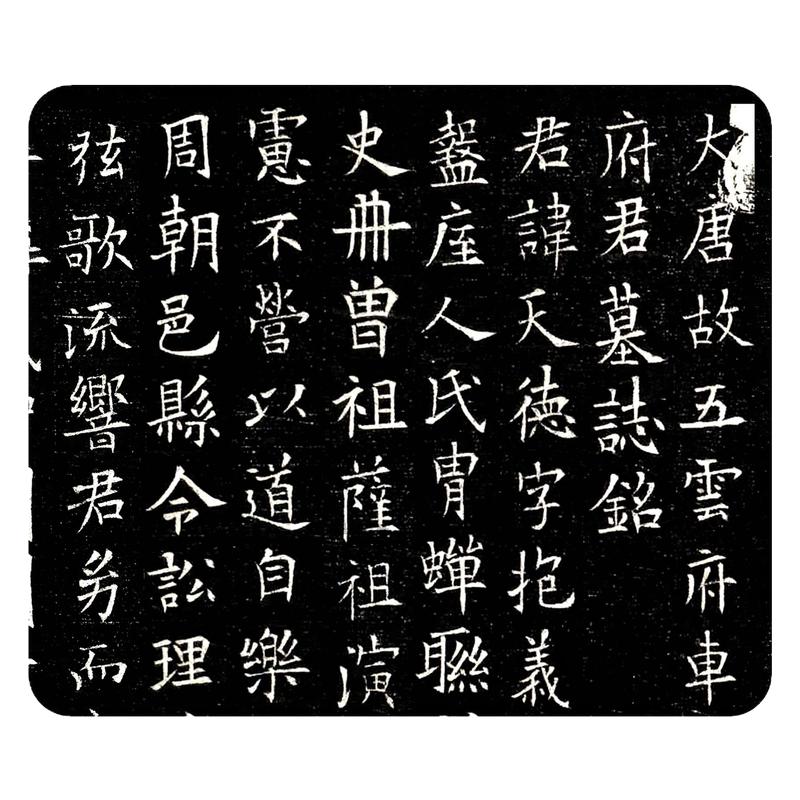 大唐故五雲府車
府君墓誌銘
君諱天徳字抱義
盩庢人氏冑蟬聯
史冊曽祖薩祖演
慮不營以道自樂
周朝邑縣令訟理
弦歌流響君幼而